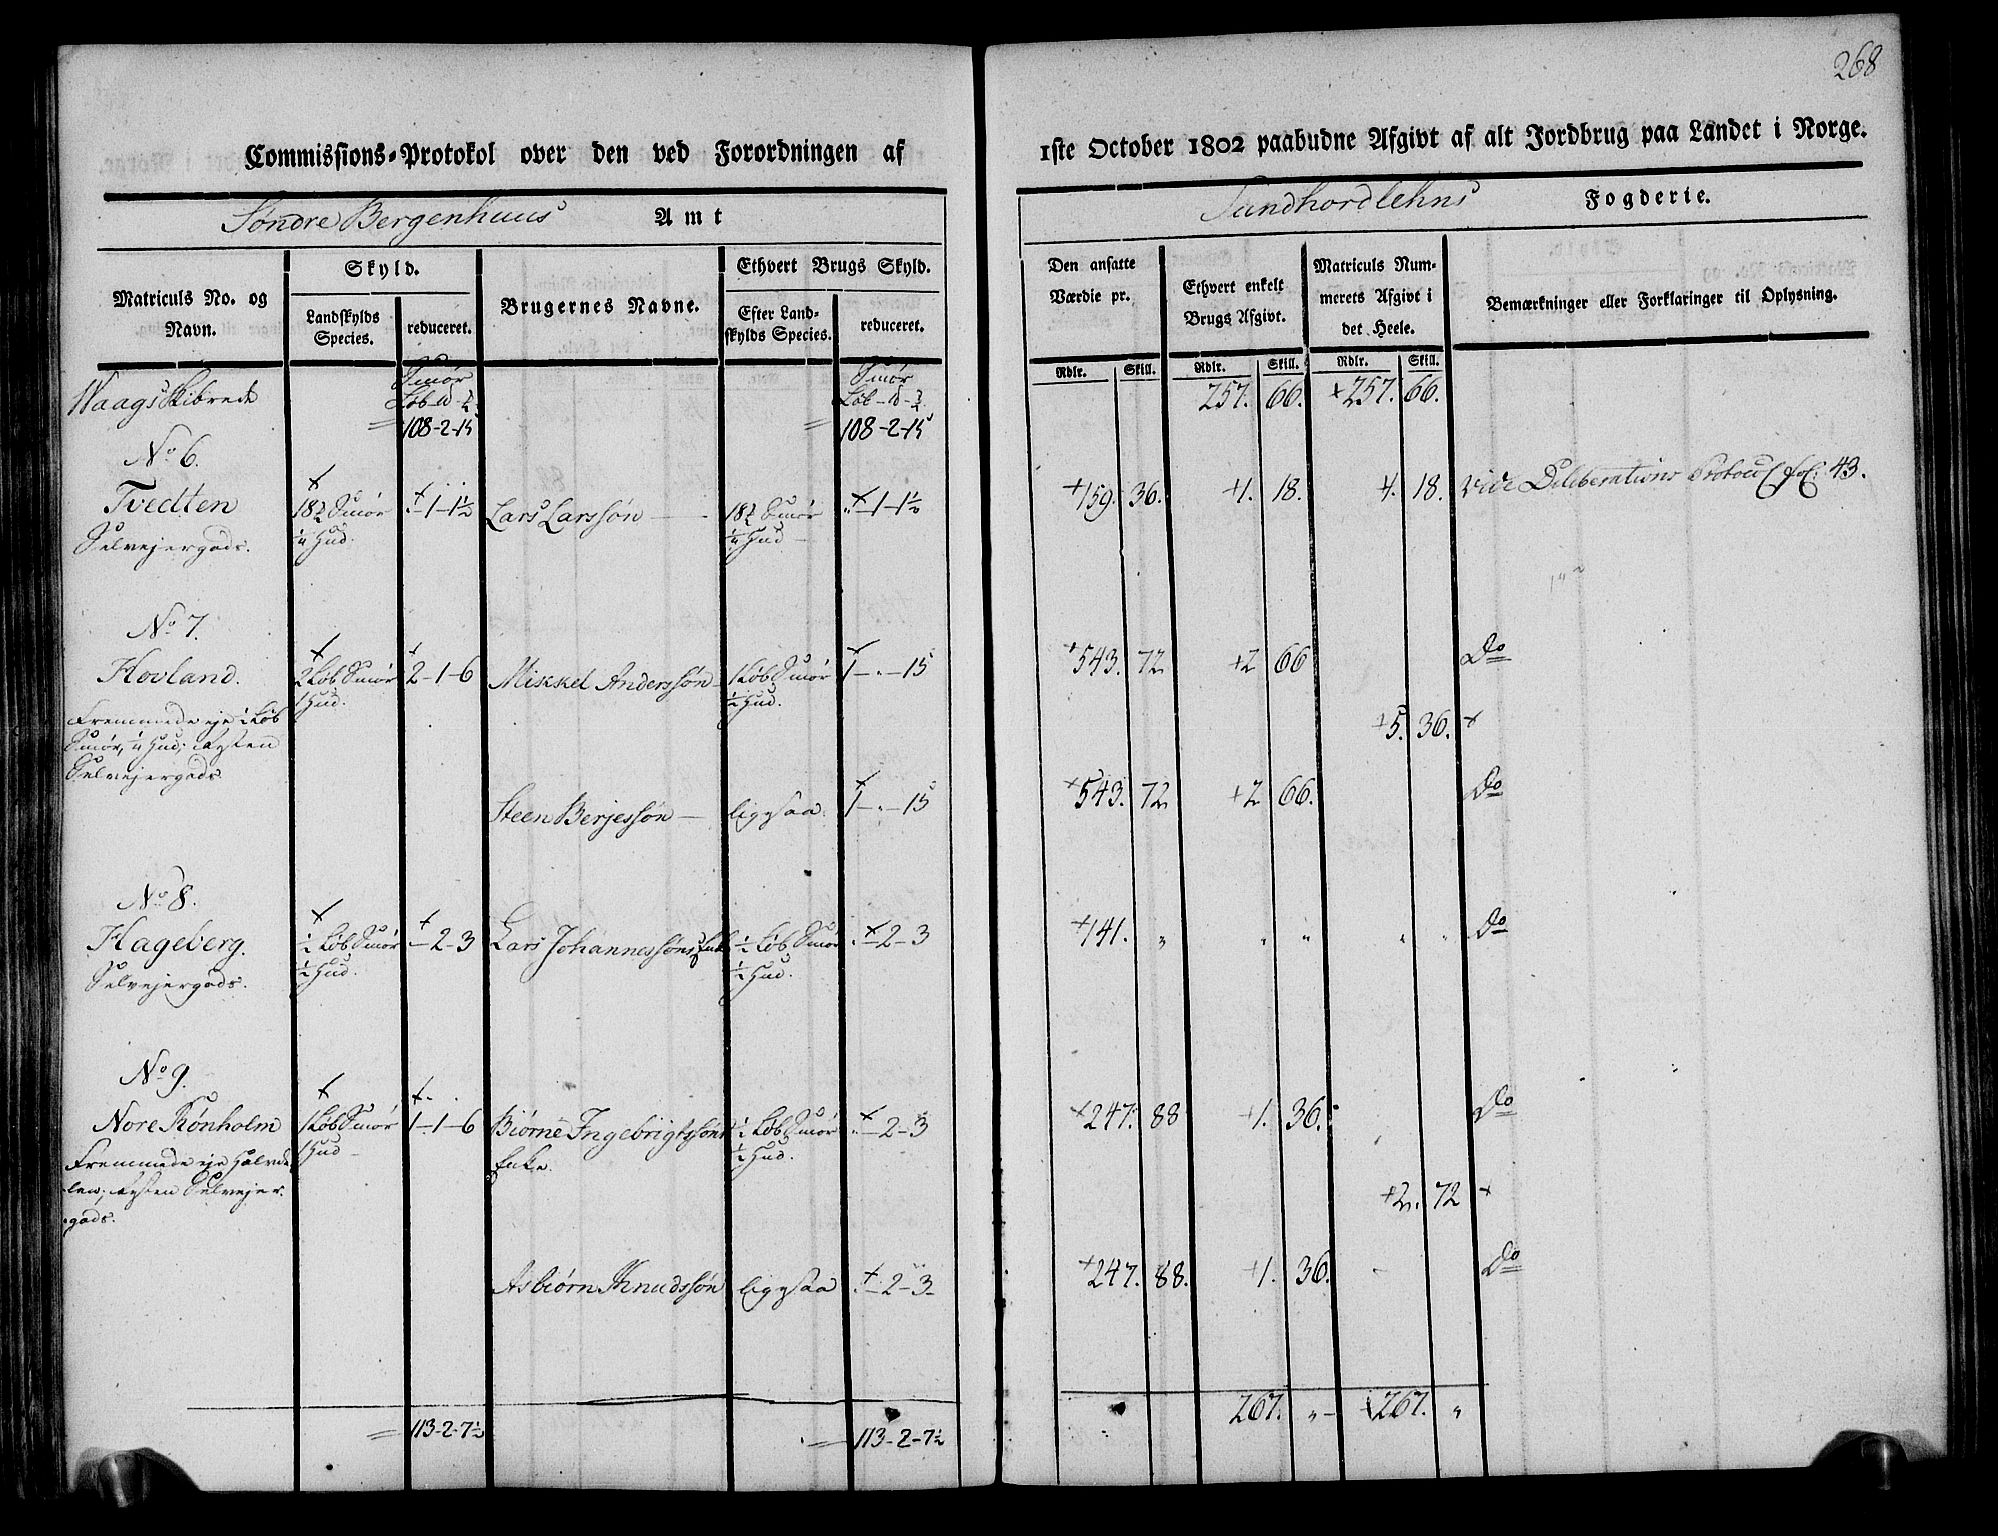 268
Commissions-Protokol over den ved Forordningen af 1ste October 1802 paabudne Afgivt af alt Jordbrug paa Landet i Norge.
Søndre Bergenhuus Amt
Sundhordlehns Fogderie.
Matriculs No. og Navn.
Skyld.
Landskylds Species.
reduceret.
Brugernes Navne.
Ethvert Brugs Skyld.
Efter Landskylds Species.
reduceret.
Den ansatte Værdie pr.
Ethvert enkelt Brugs Afgivt.
Matriculs Nummerets Afgivt i det Heele.
Bemærkninger eller Forklaringer til Oplysning.
Rdlr. Skill. Rdlr. Skill. Rdlr. Skill.
Smør Smør
Waags Skibrede 257. 66. +257. 66.
108-2-15 108-2-15
No 6.
Tvedten Smør -1-1½ Lars Larssøn Smør -1-1½ +159. 36. +1. 18. 18. vide Deliberations Protocol fol: 43.
Selvejergods. Hud. Hud
No 7.
Hovland. 2 Løb Smør 2-1-6 Mikkel Anderssøn 1 Løb Smør 1-"-15 +543. 72 +2 66 Do
1 Hud. ½ Hud.
Fremmede eje Løb
Smør, Hud; Resten +5. 36. +
Selvejergods.
Steen Berjessøn ligesaa. 1-"-15 +543. 72 +2 66. Do
No 8.
Hageberg. ½ Løb Smør -2-3 Lars Johannessøns Enke ½ Løb Smør -2-3 +141. " " " " " Do
Selvejergods. ½ Hud. ½ Hud.
No 9.
Nore Rønholm 1 Løb Smør 1-1-6 Biørne Ingebrigtssøns ½ Løb Smør -2-3 +247. 88 +1. 36. Do
1 Hud Enke. ½ Hud.
Fremmede eje Halvde
len; Resten Selvejer- +2. 72 +
gods.
Asbiørn Knudssøn ligesaa -2-3 +247. 88. +1. 36. Do
113-2-7½ 113-2-7½ 267. " 267. "